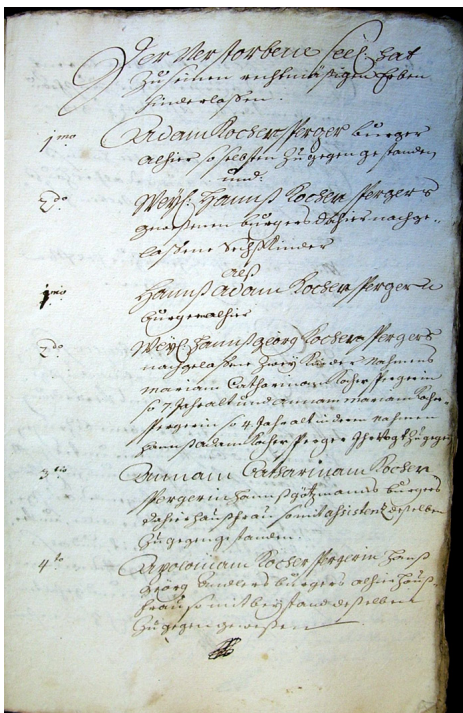 Der Verstorbene Seel. hat
zu seinen rechtmäßigen Erben
hinderlaßen.
1mo Adam Kochersperger burger
alhier so selbsten zugegen gestanden
und.
2do Weyl. Hannß Kocherspergers
geweßenen burgers dahier nachge-
laßene Sechs Kinder
alß
1mo Hannß Adam Kochersperger
burger alhier
2do Weyl. Hannß Georg Kocherspergers
nachgelaßene Zwey Kinder Nahmens
Mariam Catharinam Kocherspergerin
so 7 Jahr alt und Annam Mariam Kocher
spergerin so 4 Jahr alt in deren nahmen
Hannß Adam Kochersperger zugegen
3tio Annam Catharinam Kocher
spergerin Hannß Götzmanns burgers
dahier haußfrau so mit aßistentz deßelben
zugegen gestanden
4to Apoloniam Kocherspergerin Hannß
Georg burgers alhier hauß-
frau so mit beystand deßelben
zugegen geweßen